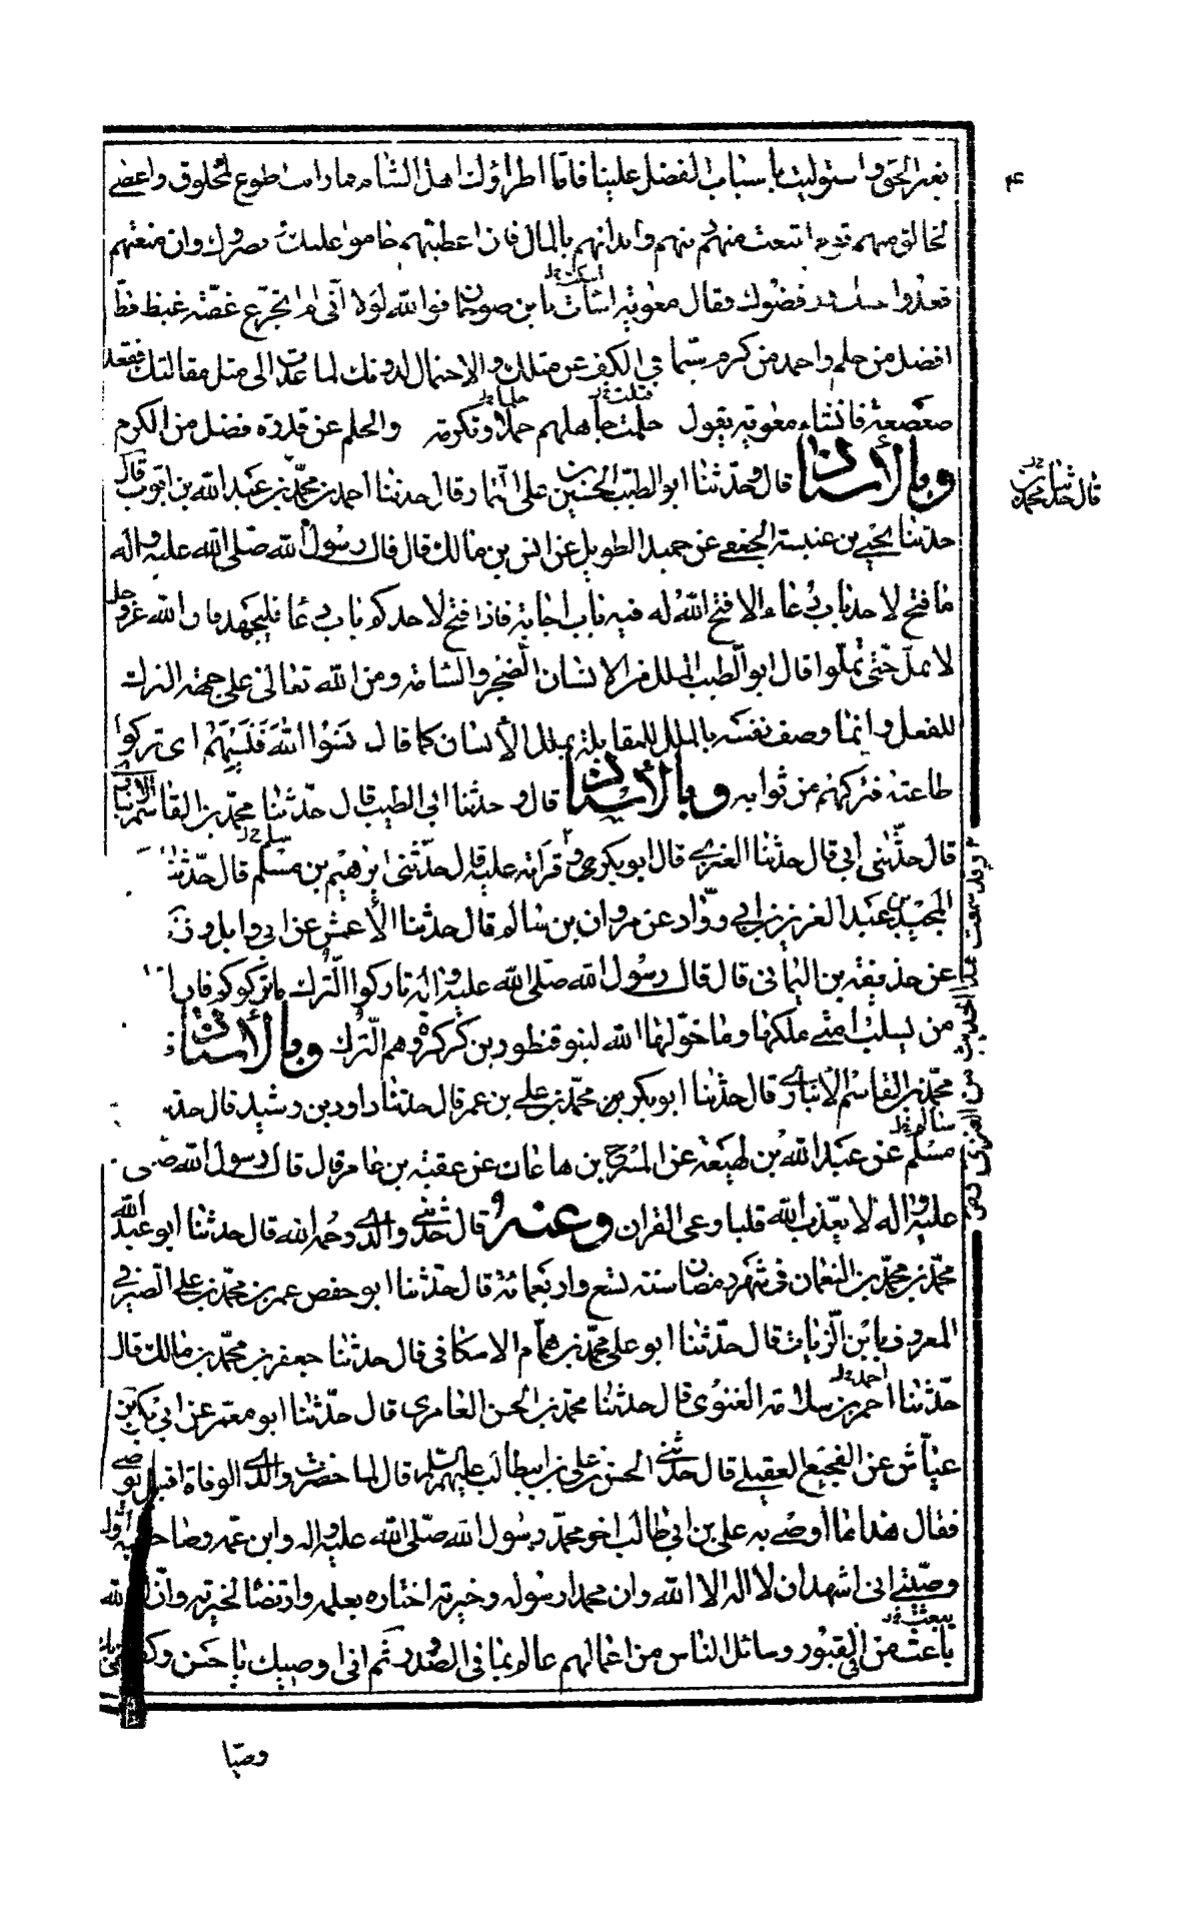 بغير الحق واستوليت بأسباب الفضل علينا فاما اطراؤك اهل الشام فما رايت اطوع لمخلوق واعصى
لخالق منهم قوم ابتعت منهم دينهم وابدانهم بالمال فان اعطيتهم حاموا عليك ونصروك وان منعتهم
قعدوا عنك ورفضوك فقال معوية اسكت يا بن صوحان فوالله لولا اني لم اتجرع غصة غيظ قط
افضل من حلم واحمد من كرم سيما في الكف عن مثلك والاحتمال لدونك لما عدت الى مثل مقالتك فقعد
صعصعة فانشاء معوية يقول قبلت جاهلهم حلما وتكرمة والحلم عن قدرة فضل من الكرم
وبالأسناد قال وحدثنا ابو الطيب الحسين بن على التمار قال حدثنا احمد بن محمد بن عبد الله بن ايوب قال
حدثنا يحيى بن عنبسة الجعفي عن حميد الطويل عن انس بن مالك قال قال رسول الله صلى الله عليه واله
ما فتح لاحد باب دعاء الا فتح الله له فيه باب اجابة فاذا فتح لاحدكم باب دعا فليجهد فان الله عز وجل
لا يمل حتى تملوا قال ابو الطيب الملل من الانسان الضجر والسامة ومن الله تعالى على جهة الترك
للفعل وانما وصف نفسه بالملل للمقابلة بملل الأنسان كما قال نسوا الله فنسيهم اى تركوا
طاعته فتركهم من ثوابه وبالأسناد قال وحدثنا ابى الطيب قال حدثنا محمد بن القاسم الانبارى
قال حدثنى ابى قال حدثنا العنزى قال ابو بكر وقراته عليه قال حدثنى ابرهيم بن مسلم قال حدثنا
المجيد بن عبد العزيز بن ابى رواد عن مروان بن سالم قال حدثنا الأعمش عن ابى وايل
عن حذيفة بن اليمانى قال قال رسول الله صلى الله عليه واله تاركوا الترك ما تركوكم فان
من يسلب امتى ملكها وما خولها الله لبنو قنطور بن كركرة وهم الترك وبالأسناد
محمد بن القاسم الانبارى قال حدثنا ابو بكر بن محمد بن على بن عمر قال حدثنا داود بن رشيد قال حد
مسلم عن عبد الله بن لهيعة عن المسرح بن هاعان عن عقبة بن عامر قال قال رسول الله
عليه واله لا يعذب الله قلبا وعى القران وعنه قال حدثنى والدى رحمه الله قال حدثنا ابو عبد الله
محمد بن محمد بن النعمان فى شهر رمضان سنة تسع واربعمائة قال حدثنا ابو حفص عمر بن محمد بن على الصيرفى
المعروف بابن الزيات قال حدثنا ابو على محمد بن همام الاسكافى قال حدثنا جعفر بن محمد بن مالك قال
حدثنا احمد بن سلامة الغنوى قال حدثنا محمد بن الحسن العامرى قال حدثنا ابو معمر عن ابى بكر بن
عياش عن الفجيع العقيلى قال حدثنى الحسن بن على بن ابيطالب عليهم السلم قال لما حضرت والدى الوفاة اقبل يوصى
فقال هذا ما اوصى به على بن ابى طالب اخو محمد رسول الله صلى الله عليه واله وابن عمه وصاحبه اول
وصيتى انى اشهد ان لا اله الا الله وان محمدا رسوله وخيرته اختاره بعلمه وارتضاه لخيرته وان الله
باعث من فى القبور وسائل الناس من اعمالهم عالم بما فى الصدور ثم انى اوصيك يا حسن وكفى بك
وصيا
قال حدثنا محمد بن
وقد سمعت هذا الحديث من العنزى